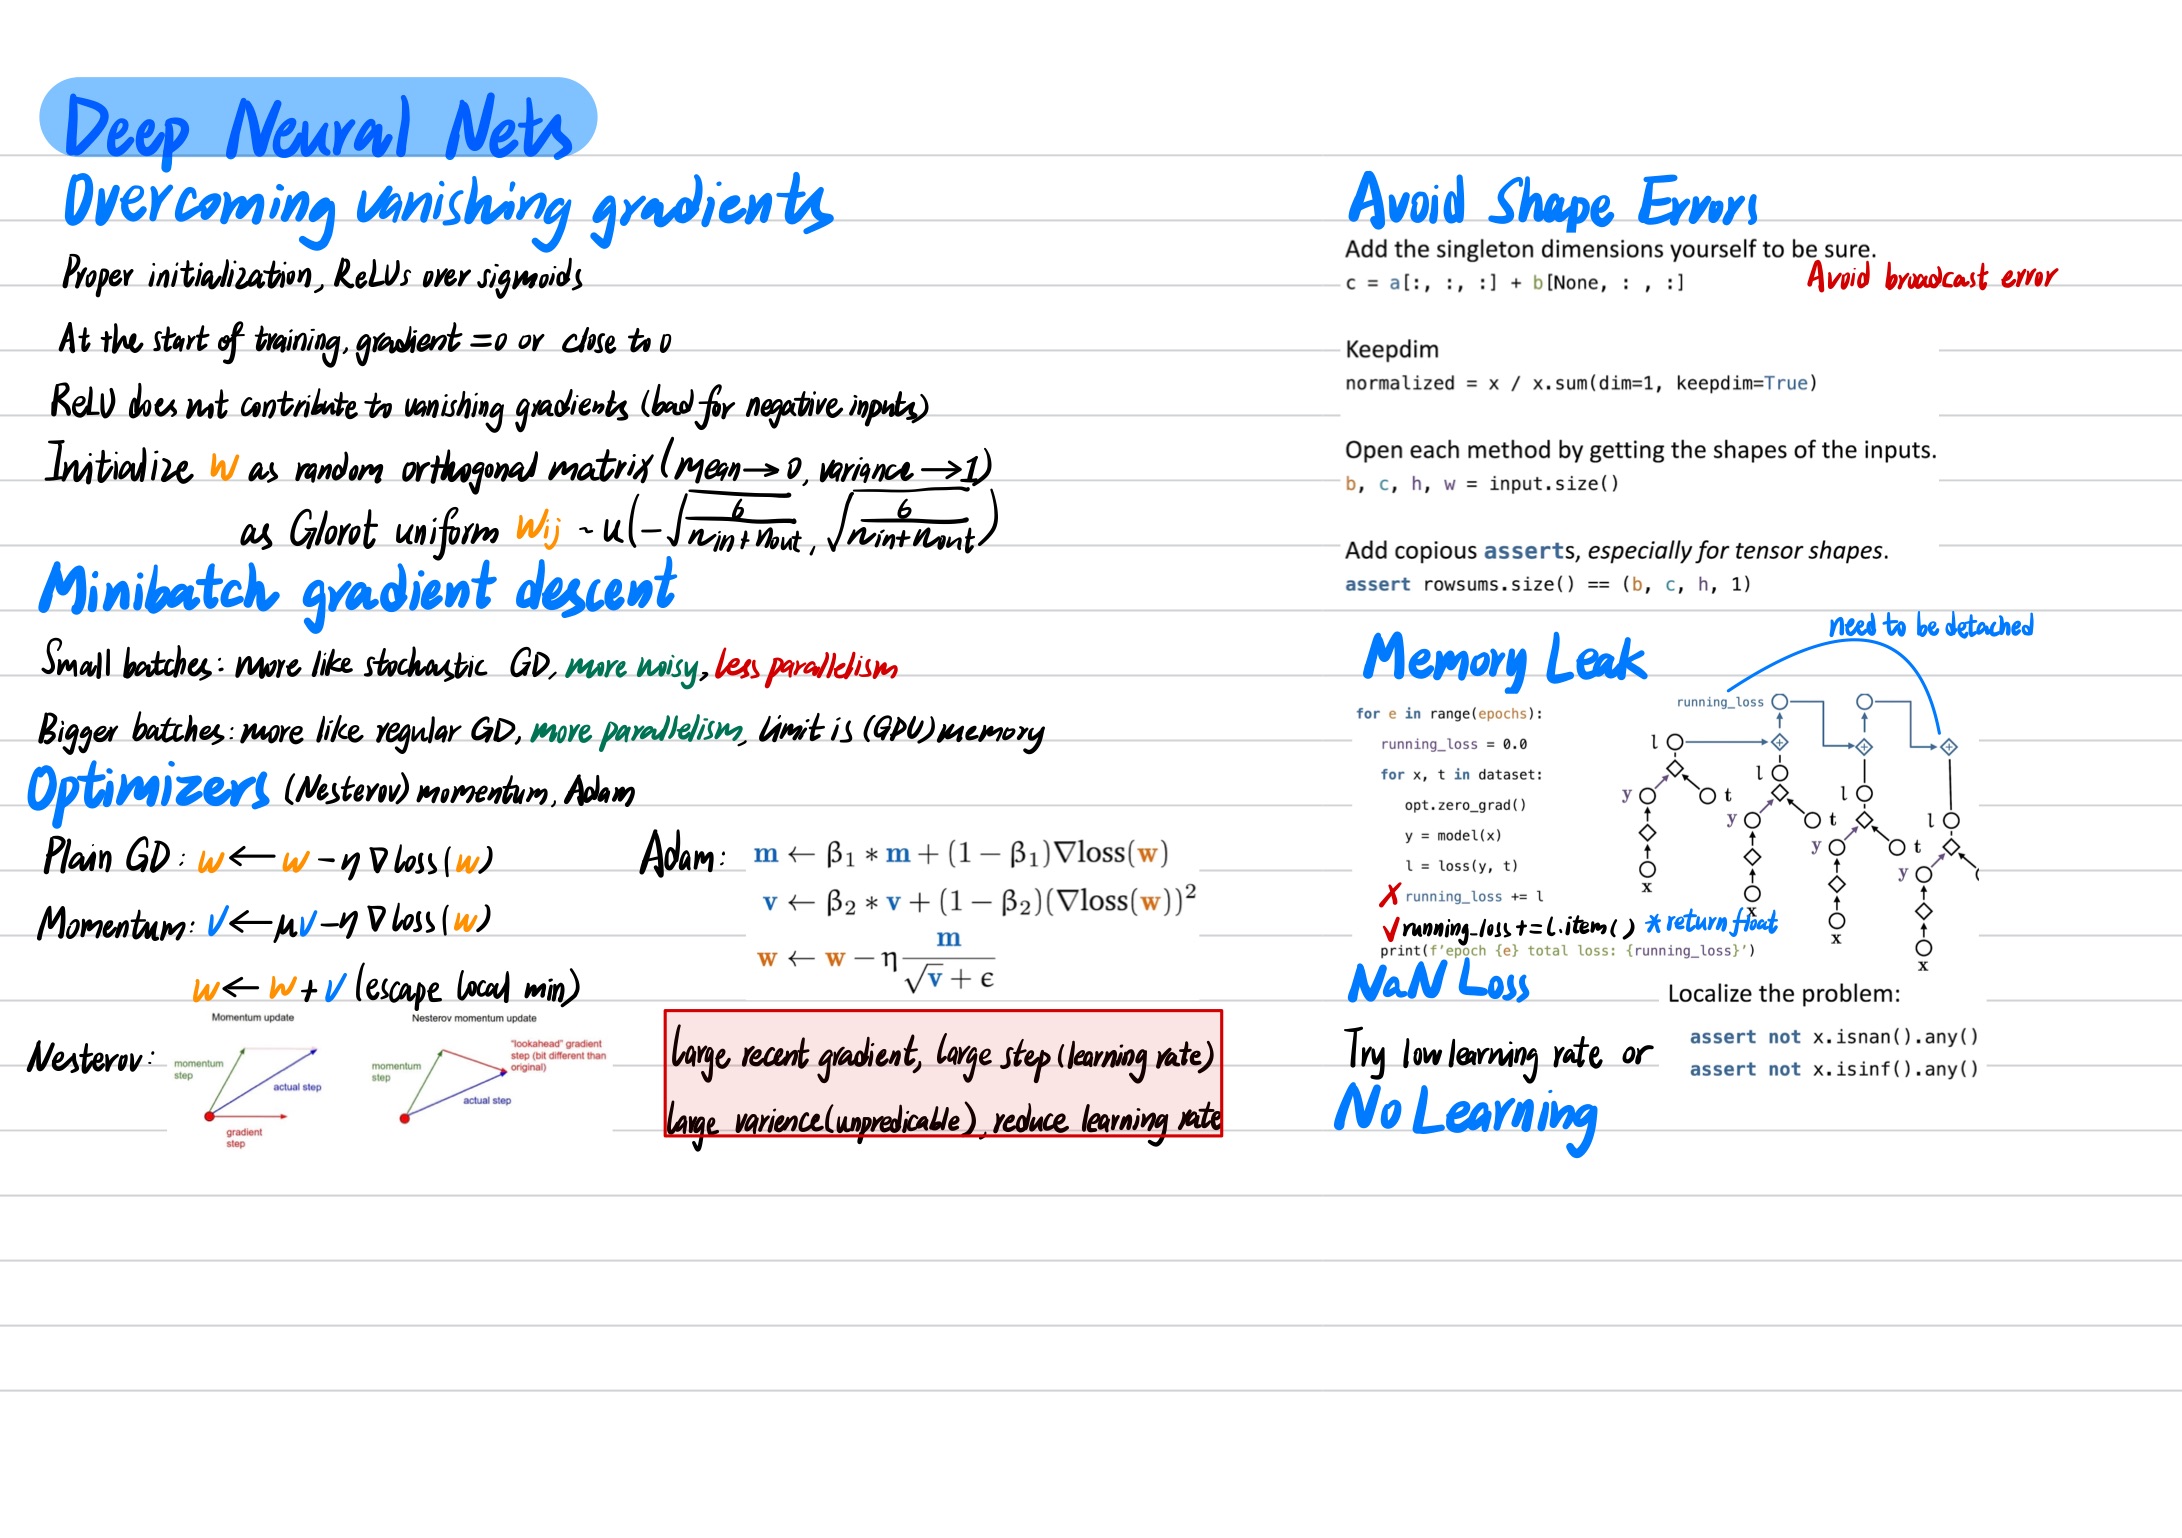 Deep Neural Nets
Overcoming vanishing gradients
Proper initialization, ReLUs over sigmoids
At the start of training, gradient =0 or close to 0
ReLU does not contribute to vanishing gradients (bad for negative inputs)
Initialize W as random orthogonal matrix (mean→0, variance→1)
as Glorot uniform Wij ~ u(-√(6/(nin+nout)), √(6/(nin+nout)))
Minibatch gradient descent
Small batches: more like stochastic GD, more noisy, less parallelism
Bigger batches: more like regular GD, more parallelism, limit is (GPU) memory
Optimizers (Nesterov) momentum, Adam
Plain GD: w ← w - η ∇ loss(w)
Momentum: v ← μv - η ∇ loss(w)
w ← w + v (escape local min)
Nesterov:
Momentum update
momentum step
actual step
gradient step
Nesterov momentum update
momentum step
"lookahead" gradient step (bit different than original)
actual step
Adam:
m ← β₁ * m + (1 − β₁)∇loss(w)
v ← β₂ * v + (1 − β₂)(∇loss(w))²
w ← w − η m/(√v + ϵ)
Large recent gradient, large step (learning rate)
large varience (unpredicable), reduce learning rate
Avoid Shape Errors
Add the singleton dimensions yourself to be sure.
c = a[:, :, :] + b[None, : , :]
Avoid broadcast error
Keepdim
normalized = x / x.sum(dim=1, keepdim=True)
Open each method by getting the shapes of the inputs.
b, c, h, w = input.size()
Add copious asserts, especially for tensor shapes.
assert rowsums.size() == (b, c, h, 1)
Memory Leak
need to be detached
for e in range(epochs):
running_loss = 0.0
for x, t in dataset:
opt.zero_grad()
y = model(x)
l = loss(y, t)
✗ running_loss += l
✓ running_loss += l.item() * return float
print(f'epoch {e} total loss: {running_loss}')
running_loss
l
y t
x
l
y t
x
l
y t
x
l
y
x
NaN Loss
Try low learning rate or
Localize the problem:
assert not x.isnan().any()
assert not x.isinf().any()
No Learning